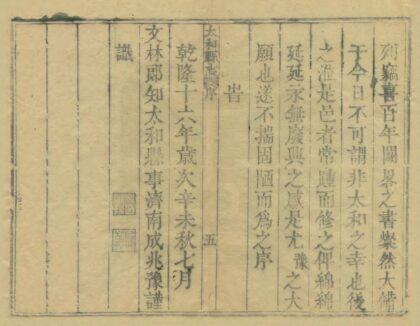 列竊喜百年闕畧之書燦然大備
于今日不可謂非太和之幸也後
之涖是邑者常踵而修之俾綿綿
延延永無廢興之感是尤豫之大
願也遂不揣固陋而為之序
旹
太和縣志序
五
乾隆十六年歲次辛未秋七月
文林郎知太和縣事濟南成兆豫謹
識